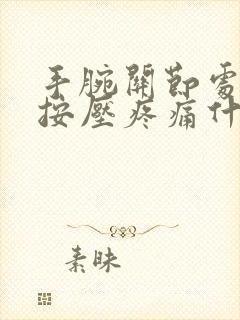 手腕關節處
按壓疼痛什
素昧